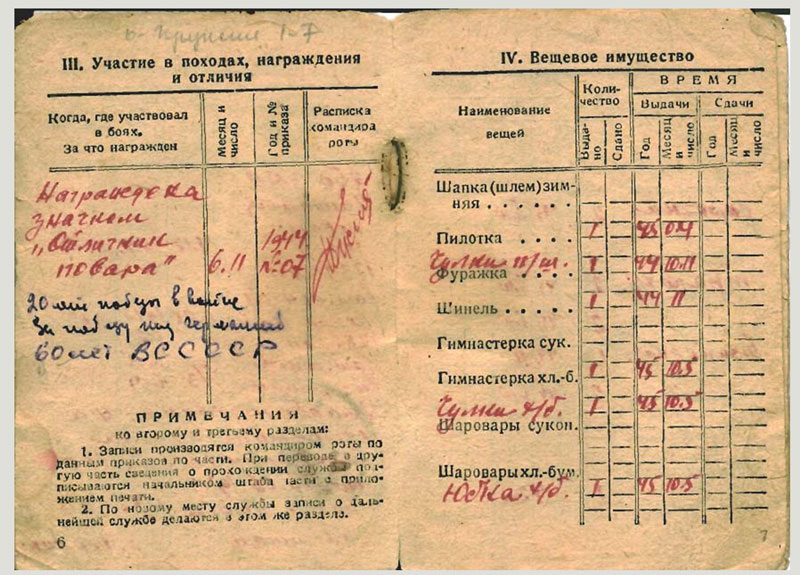 III. Участие в походах, награждения
и отличия
Когда, где участвовал
в боях.
За что награжден
Месяц и
число
Год и №
приказа
Расписка
командира
роты
значком
„Отличник
повара"
6.11
1944
№07
20 лет победы в войне
За победу над Германией
60 лет ВС СССР
ПРИМЕЧАНИЯ
ко второму и третьему разделам:
1. Записи производятся командиром роты по
данным приказов по части. При переводе в дру-
гую часть сведения о прохождении службы под-
писываются начальником штаба части с прило-
жением печати.
2. По новому месту службы записи о даль-
нейшей службе делаются в этом же разделе.
6
IV. Вещевое имущество
Наименование
вещей
Коли-
чество
ВРЕМЯ
Выдачи
Сдачи
Выда-
но
Сдано
Год
Месяц
и
число
Год
Месяц
и
число
Шапка (шлем) зим-
няя . . . . . .
Пилотка . . . . 1 45 04
Чулки п/ш. 1 44 10.11
Фуражка . . . .
Шинель . . . . 1 44 11
Гимнастерка сук.
Гимнастерка хл.-б. 1 45 10.5
Чулки х/б. 1 45 10.5
Шаровары сукон.
Шаровары хл.-бум.
Юбка х/б. 1 45 10.5
7